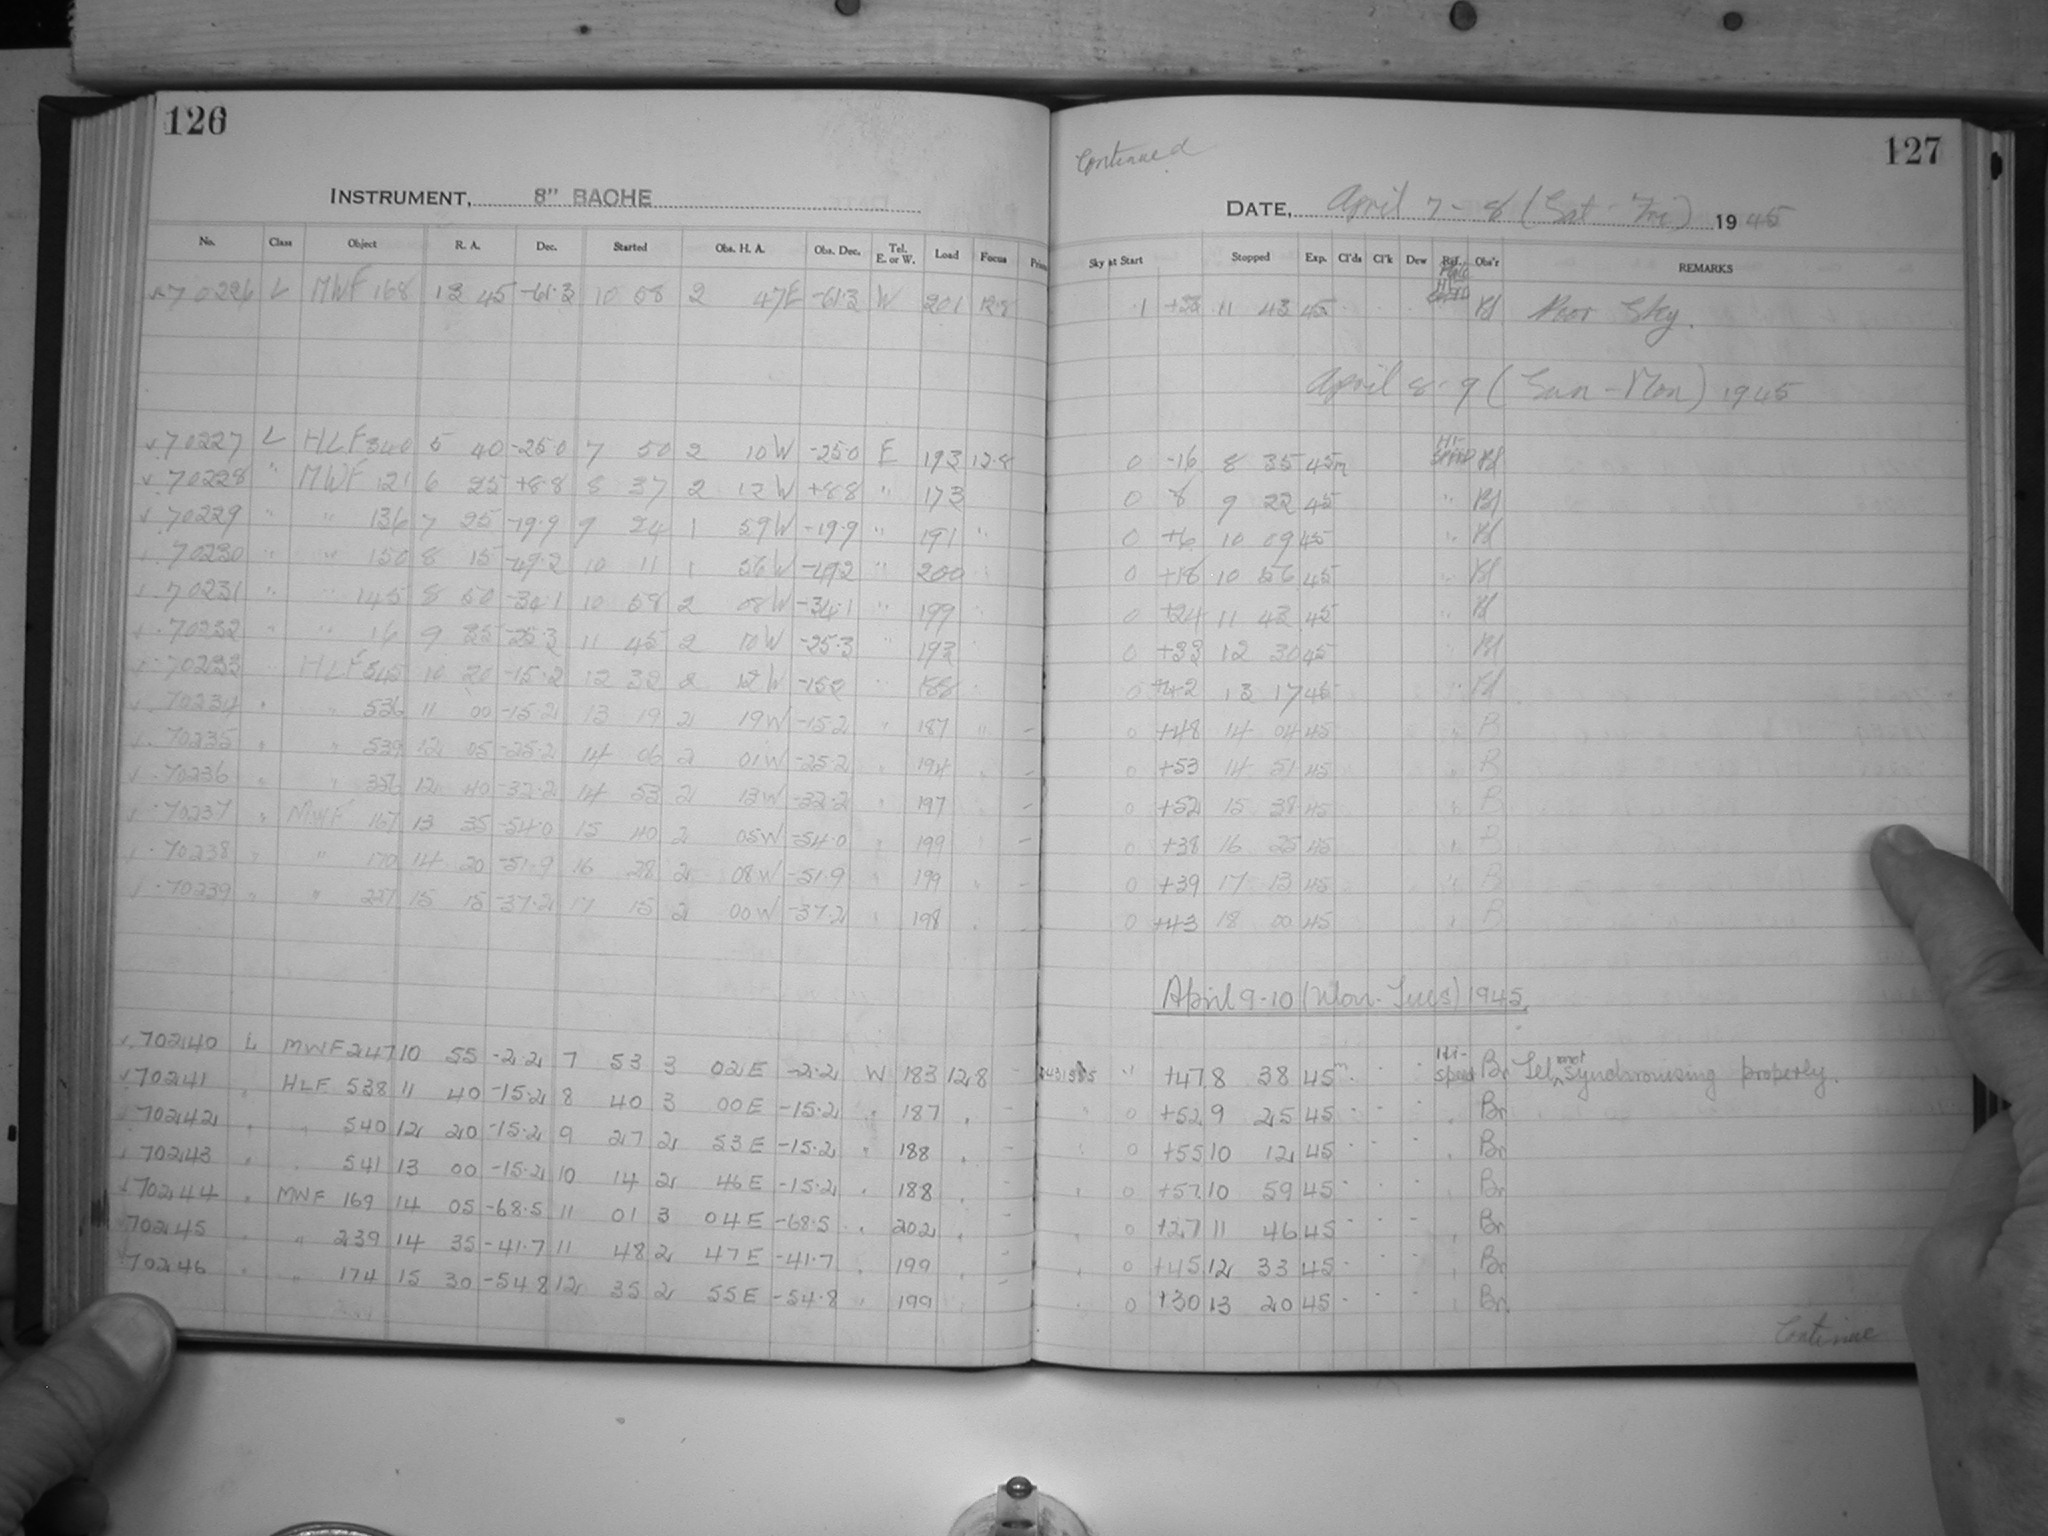 126
INSTRUMENT, 8" BACHE
No. Class Object R. A. Dec. Started Obs. H. A. Obs. Dec. Tel. E. or W. Load Focus
70226 L MWF 168 13 45 -61.3 10 58 2 47E -61.3 W 201 12.8
70227 L HLF 340 5 40 -25.0 7 50 2 10W -25.0 E 193 12.8
70228 " MWF 121 6 25 +8.8 8 37 2 12W +8.8 " 173
70229 " " 136 7 25 -19.9 9 24 1 59W -19.9 " 191 "
70230 " " 150 8 15 -49.2 10 11 1 56W -49.2 " 200 "
70231 " " 145 8 50 -34.1 10 58 2 08W -34.1 " 199 "
70232 " " 16 9 35 -25.3 11 45 2 10W -25.3 " 193
70233 " HLF 10 20 -15.2 12 32 2 12W -15.2 " 188
70234 " " 536 11 00 -15.2 13 19 2 19W -15.2 " 187 " -
70235 " " 539 12 05 -25.2 14 06 2 01W -25.2 " 194 " -
70236 " " 356 12 40 -32.2 14 53 2 13W -32.2 " 197 -
70237 " MWF 167 13 35 -54.0 15 40 2 05W -54.0 " 199 -
70238 " " 170 14 20 -51.9 16 28 2 08W -51.9 " 199 " -
70239 " " 227 15 15 -37.2 17 15 2 00W -37.2 " 198 " -
70240 L MWF 247 10 55 -2.2 7 53 3 02E -2.2 W 183 12.8 -
70241 " HLF 538 11 40 -15.2 8 40 3 00E -15.2 " 187 " -
70242 " " 540 12 20 -15.2 9 27 2 53E -15.2 " 188 " -
70243 " " 541 13 00 -15.2 10 14 2 46E -15.2 " 188 " -
70244 " MWF 169 14 05 -68.5 11 01 3 04E -68.5 " 202 " -
70245 " " 239 14 35 -41.7 11 48 2 47E -41.7 " 199 " -
70246 " " 174 15 30 -54.8 12 35 2 55E -54.8 " 199 " -
Continued
127
DATE, April 7-8 (Sat - ) 1945
Sky at Start Stopped Exp. Cl'ds Cl'k Dew Obs'r REMARKS
.1 +33 11 43 45 Bl Poor Sky.
April 8-9 (Sun - Mon) 1945
0 -16 8 35 45m Hi-Speed Bl
0 8 9 22 45 " Bl
0 +6 10 09 45 " Bl
0 +18 10 56 45 " Bl
0 +24 11 43 45 " Bl
0 +33 12 30 45 " Bl
0 +42 13 17 45 " Bl
0 +48 14 04 45 " B
0 +53 14 51 45 " B
0 +52 15 38 45 " B
0 +38 16 25 45 " B
0 +39 17 13 45 " B
0 +43 18 00 45 " B
April 9-10 (Mon. Tues) 1945.
+47 8 38 45m Hi-speed Br Tel. not synchronising properly.
" 0 +52 9 25 45 " Br
" 0 +55 10 12 45 " Br
" 0 +57 10 59 45 " Br
" 0 +27 11 46 45 " Br
" 0 +45 12 33 45 " Br
" 0 +30 13 20 45 " Br
Continue